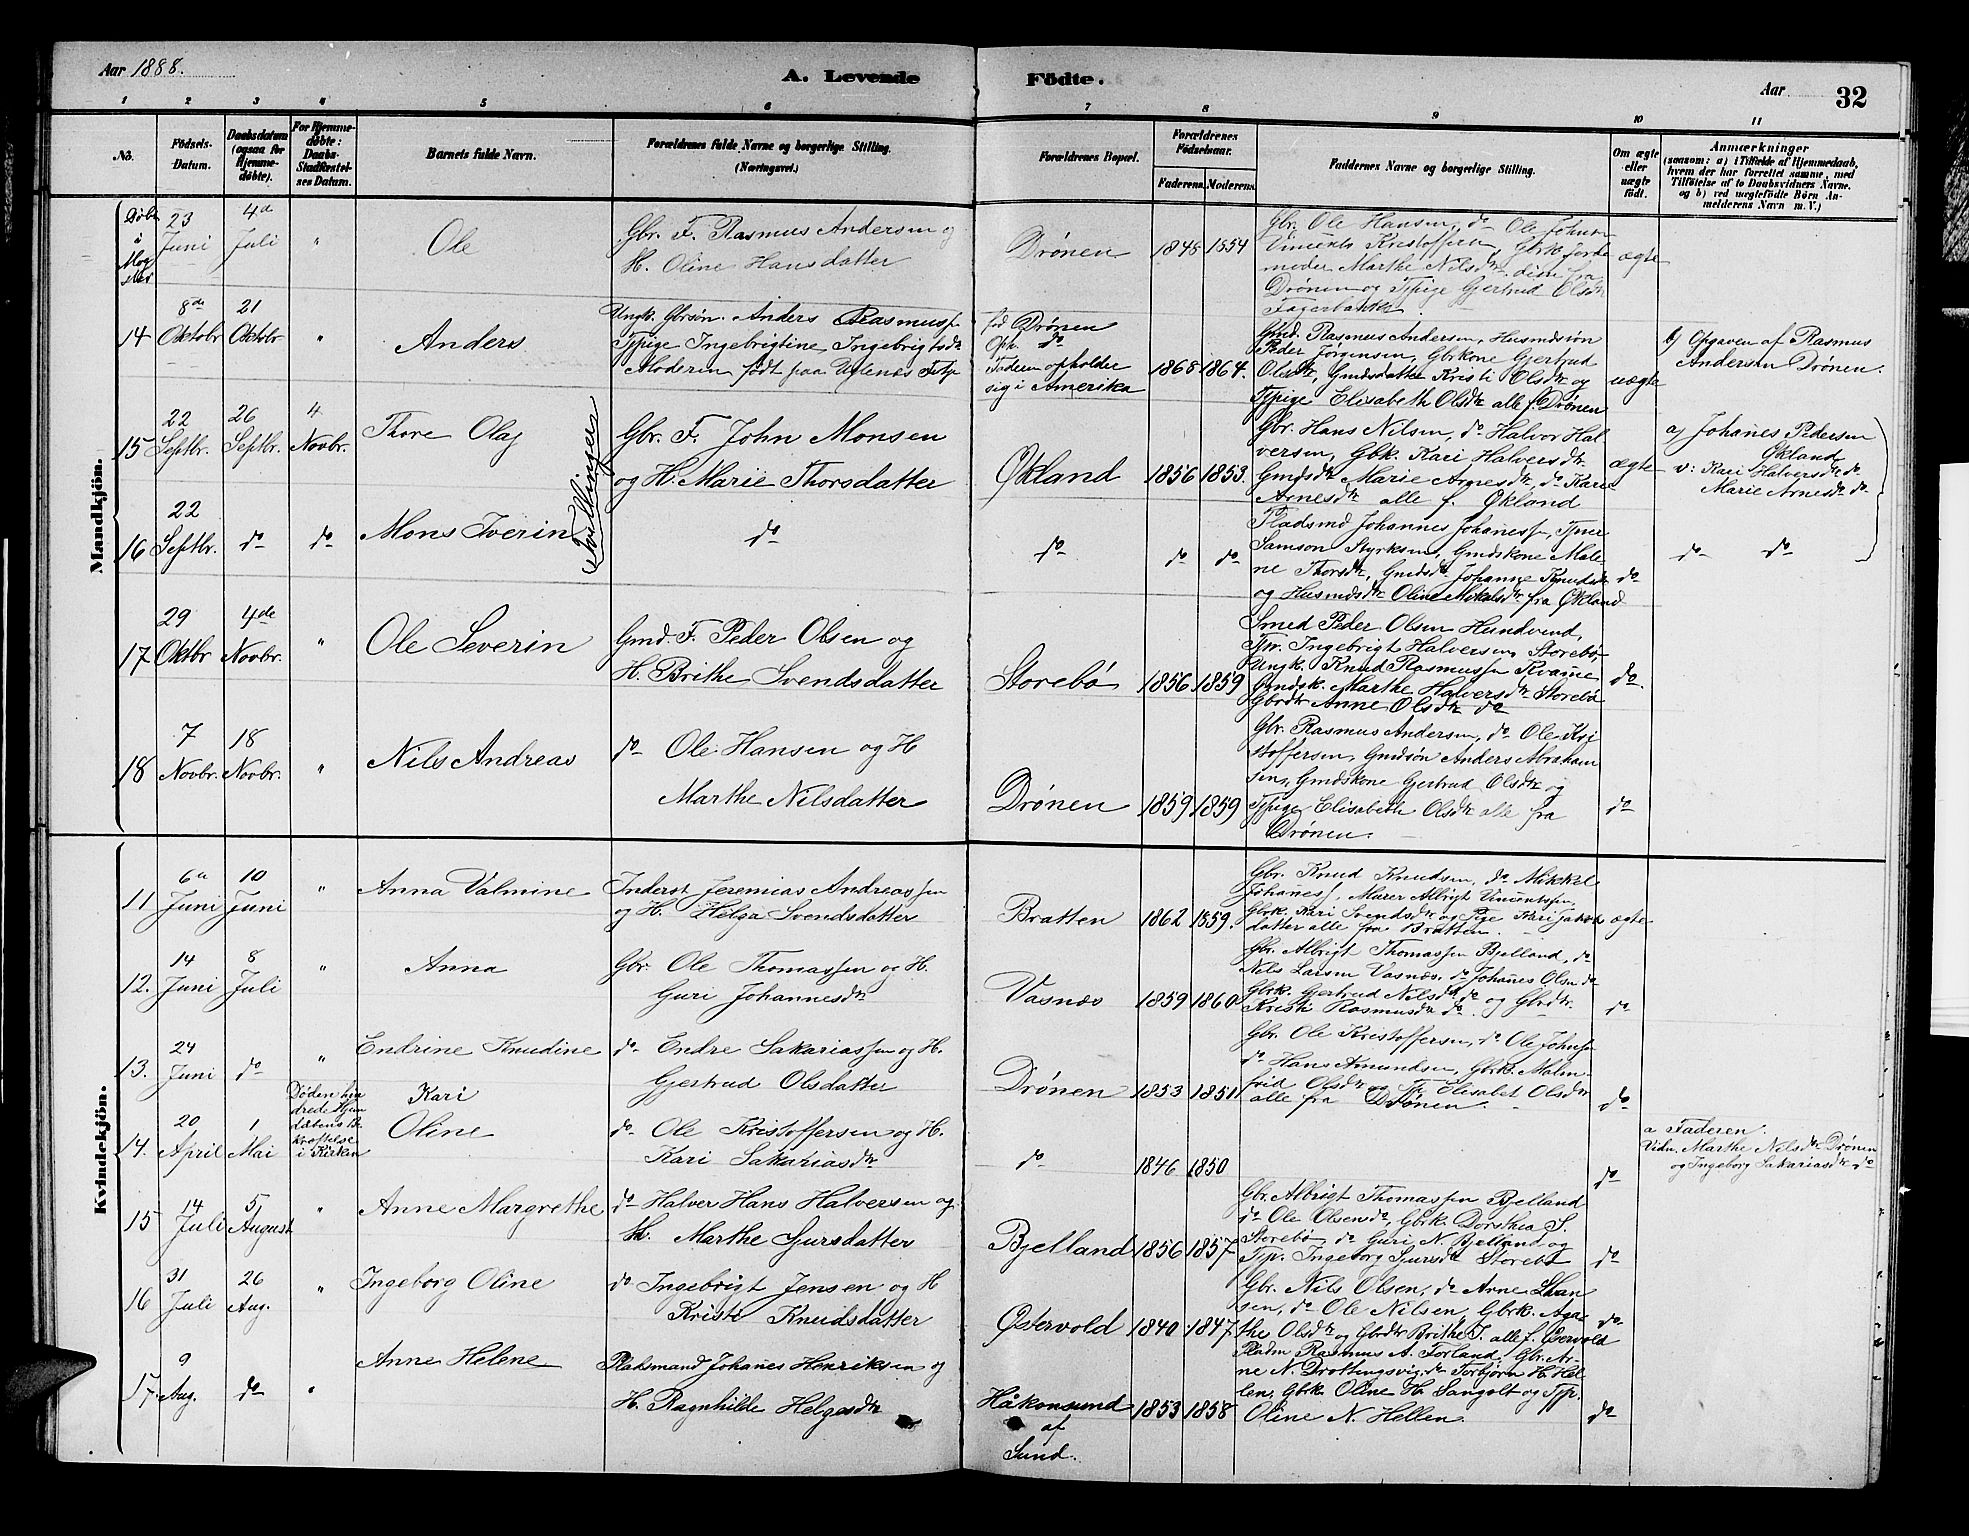 Aar 1888.
A. Levende Födte.
Aar
32
1 2 3 4 5 6 7 8 9 10 11
No.
Födsels-
Datum.
Daabsdatum
(ogsaa for
Hjemme-
døbte).
For Hjemme-
døbte:
Daabs-
Stadfæstel-
ses Datum.
Barnets fulde Navn.
Forældrenes fulde Navne og borgerlige Stilling.
(Næringsvei.)
Forældrenes Bopæl.
Forældrenes
Födselsaar.
Faderens. Moderens.
Faddernes Navne og borgerlige Stilling.
Om ægte
eller
uægte
født.
Anmærkninger
(saasom: a) i Tilfælde af Hjemmedaab,
hvem der har forrettet samme, med
Tilføielse af to Daabsvidners Navne.
og b) ved uægtefödte Börn An-
melderens Navn m. V.)
Mandkjön.
23 Juni
4de Juli
"
Ole
Gbr. F. Rasmus Andersen og
H. Oline Hansdatter
Drönen
1848 1854
Gbr. Ole Hansen, do Ole Johnsn
Vincents Kristoffersen, Gbrk. Jorde
moder Marthe Nilsdtr, disse fra
Drönen og Tjpige Gjertrud Olsdtr
Fagerbakke
ægte
14
8de Oktobr
21 Oktbr
"
Anders
Ungk. Gbrsøn. Anders Rasmuss.
Tjpige Ingebrigtine Ingebrigtsdtr
Moderen født paa Uglenæs Fitje
fød Drönen
Oph. do
Faderen opholder
sig i Amerika
1868 1864.
Gmd. Rasmus Andersen, Husmdsön
Peder Jorgensen, Gbrkone Gjertrud
Olsdtr, Gmdsdatter Kristi Olsdtr og
Tjpige Elisabeth Olsdtr alle f. Drönen
uægte
b) Opgaven af Rasmus
Andersen Drönen.
15
22 Septbr.
26 Septbr.
4 Novbr.
Thore Olaf
Tvillinger
Gbr. F. John Monsen
og H. Marie Thorsdatter
Økland
1856 1853.
Gbr. Hans Nilsen, do Halvor Hal
versen, Gbk. Kari Halversdtr
Gmdsdtr Marie Arnesdtr, do Kari
Arnesdtr alle f. Økland
ægte
a) Johanes Pedersen
Økland
v: Kari Halversdtr do
Marie Arnesdtr do
16
22 Septbr.
do
do
Mons Iverin
do
do
do do
Pladsmd Johannes Johaness., Tjner
Samson Styrksen, Gmdskone Male
ne Thorsdtr, Gmdsdtr Johanne Knudsdtr
og Husmdsdtr Oline Mikalsdtr fra Økland
do
do do
17
29 Oktbr
4de Novbr.
"
Ole Severin
Gmd. F. Peder Olsen og
H. Brithe Svendsdatter
Storebö
1856 1859
Smed Peder Olsen Hundvend,
Tjr. Ingebrigt Halversen, Storebö,
Ungk. Knud Rasmussen Kvame
Gmdsk. Marthe Halversdtr Storebö
Gbrdtr Anne Olsdtr do
do.
18
7 Novbr.
18 Novbr.
"
Nils Andreas
do Ole Hansen og H
Marthe Nilsdatter
Drönen
1859 1859
Gbr. Rasmus Andersen, do Ole Kri
stoffersen, Gmdsön Anders Abraham
sen, Gmdskone Gjertrud Olsdtr og
Tjpige Elisabeth Olsdtr alle fra
Drönen.
do
Kvindekjön.
11
6te Juni
10 Juni
"
Anna Valmine
Inderst Jeremias Andreassen
og H. Helga Svendsdatter
Bratten
1862 1859.
Gbr. Knud Knudsen, do Mikkel
Johaness, Murer Albrigt Vincentsen,
Gbrk. Kari Svendsdtr og Pige Kari Jakobs
datter alle fra Bratten.
ægte
12.
14 Juni
8 Juli
"
Anna
Gbr. Ole Thomassen og H.
Guri Johannesdtr
Vasnæs
1859 1860
Gbr. Albrigt Thomassen Bjelland, do
Nils Larsen Vasnæs. do Johanes Olsn do
Gbrk. Gjertrud Nilsdtr do og Gbrdtr.
Kristi Rasmusdtr do.
do
13.
24 Juni
do
"
Endrine Knudine
Kari
do Endre Sakariassen og H.
Gjertrud Olsdatter
Drönen
1853 1851
Gbr. Ole Kristoffersen, do Ole Johnsn
do Hans Amundsen, Gbrk. Malm-
frid Olsdtr og Tp. Elisabet Olsdtr
alle fra Drönen.
do
14.
20 April
1 Mai
Døden hin
drede Hjem
daabens Be
kræftelse
i Kirken
Oline
do Ole Kristoffersen og H.
Kari Sakariasdtr
do
1846 1850
do
a Faderen.
Vidn. Marthe Nilsdtr Drönen
og Ingeborg Sakariasdtr do
15
14 Juli
5 August
"
Anne Margrethe
do Halver Hans Halversen og
H. Marthe Sjursdatter
Bjelland
1856 1857
Gbr. Albrigt Thomassen Bjelland
do Ole Olsen do, Gbrk. Dorthea S.
Storebö, do Guri N. Bjelland og
Tjp. Ingeborg Sjursdtr Storebö
do
16
31 Juli
26 Aug.
"
Ingeborg Oline
do Ingebrigt Jensen og H
Kristi Knudsdatter
Østervold
1840 1847
Gbr. Nils Olsen, do Arne
sen, do Ole Nilsen, Gbrk. Aga
the Olsdtr og Gbrdtr Brithe I. alle f.
do
17
9 Aug.
do
"
Anne Helene
Pladsmand Johanes Henriksen og
H. Ragnhilde Helgesdtr
Håkonsund
af
Sund.
1853 1858
Pladm Rasmus A. Forland, Gbr. Ar-
ne N. Drottingsvig, do Torbjörn H. Hel
len, Gbrk. Oline H. Sangolt og Tjp.
Oline N. Hellen.
do